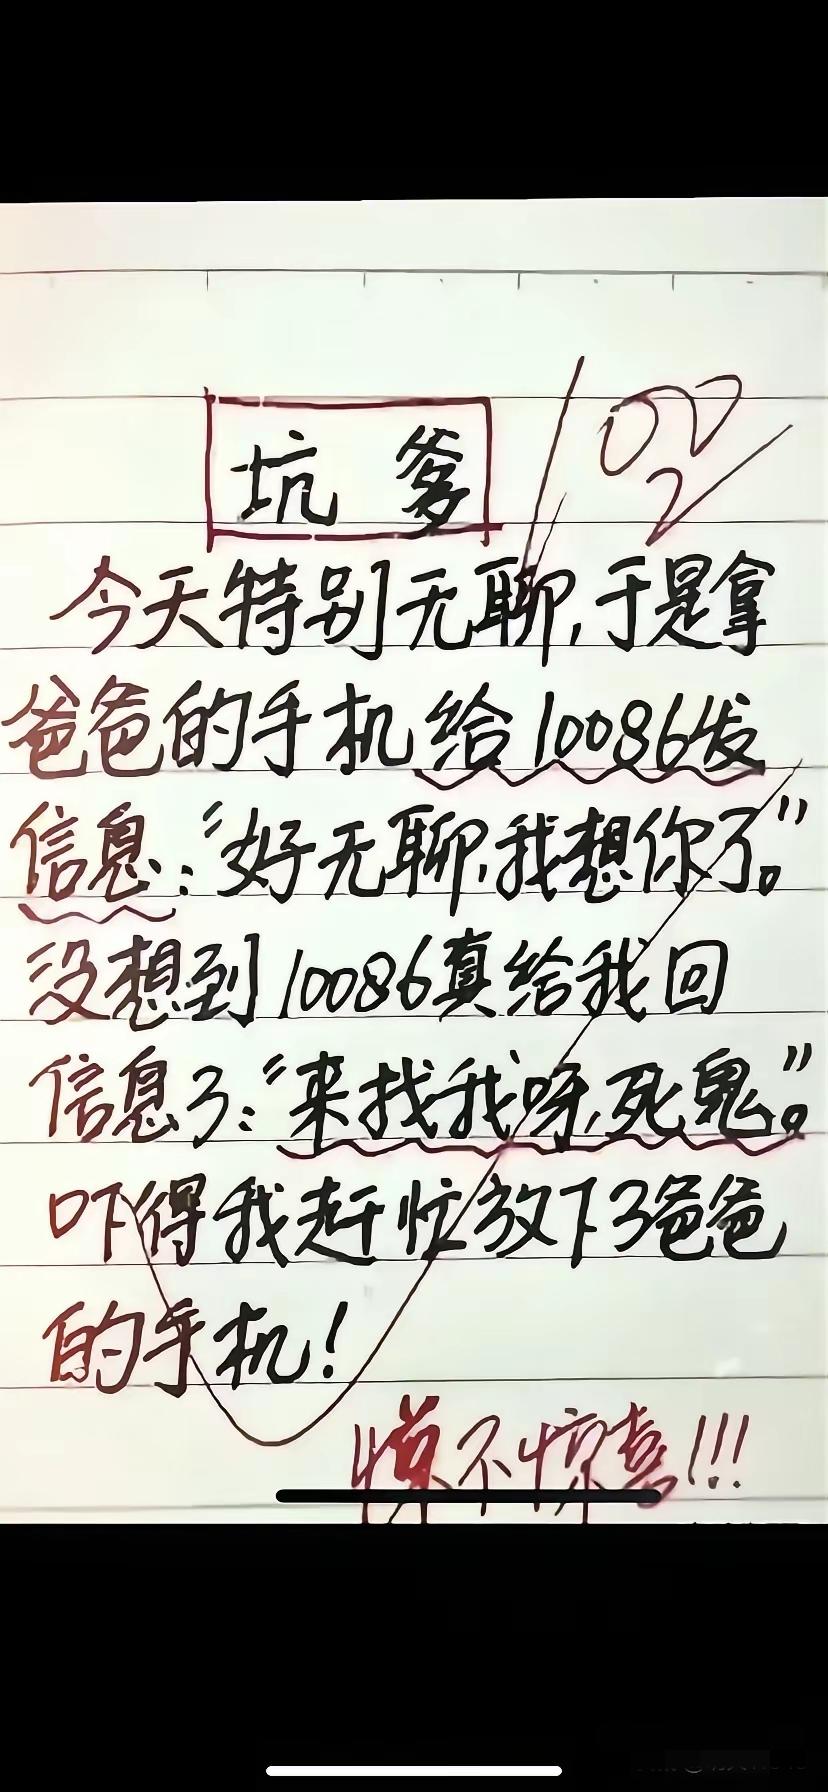 坑爹
100
今天特别无聊,于是拿
爸爸的手机给10086发
信息:“好无聊,我想你了。”
没想到10086真给我回
信息了:“来找我呀,死鬼。”
吓得我赶忙放下了爸爸
的手机!
惊不惊喜!!!